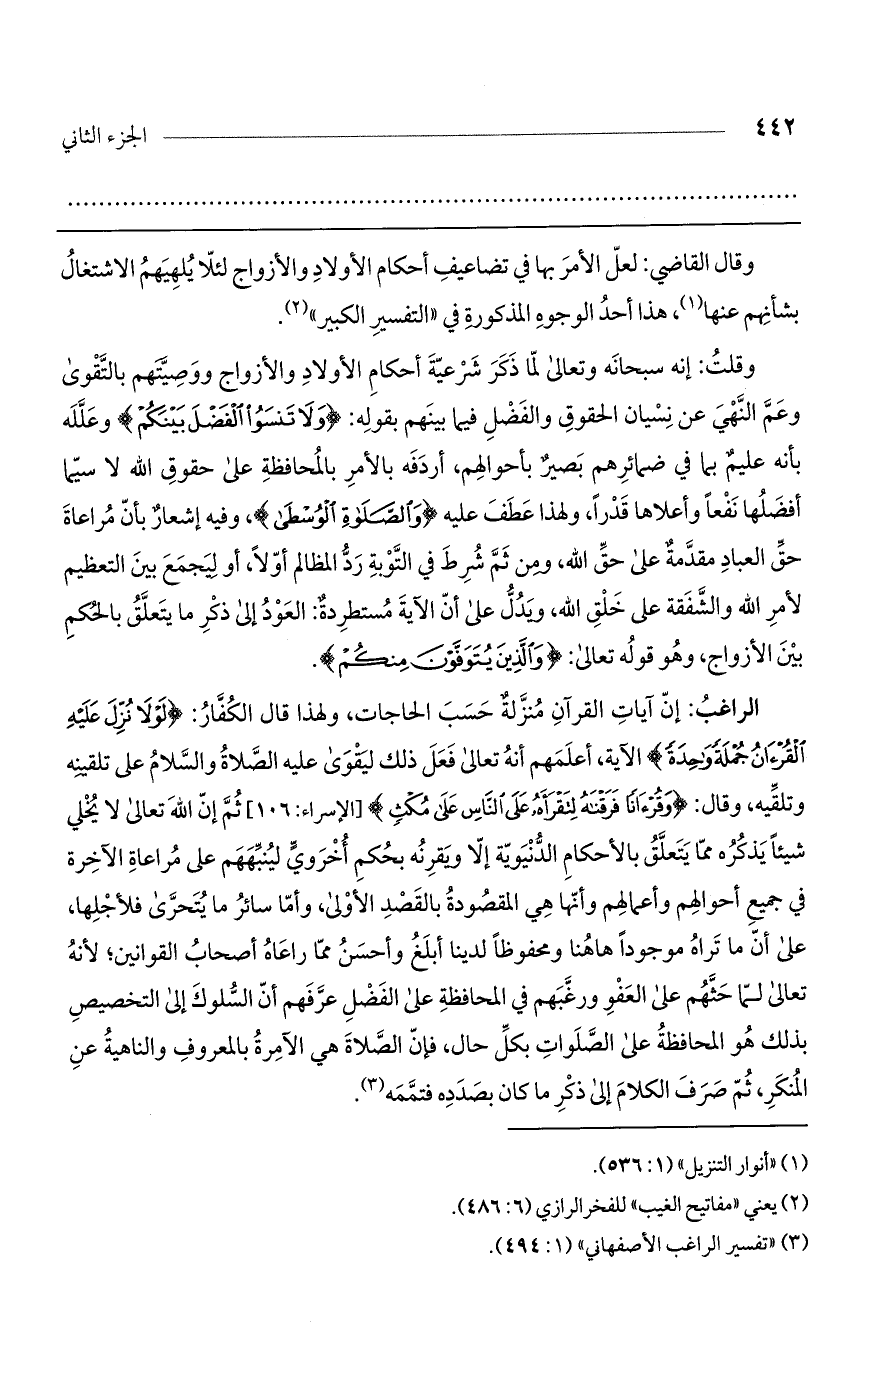 ٤٤٢ الجزء الثاني
وقال القاضي: لعلّ الأمرَ بها في تضاعيفِ أحكام الأولادِ والأزواج لئلّا يُلهِيَهمُ الاشتغالُ
بشأنِهم عنها(١)، هذا أحدُ الوجوهِ المذكورةِ في «التفسيرِ الكبير»(٢).
وقلتُ: إنه سبحانَه وتعالىٰ لمّا ذَكَرَ شَرْعيّةَ أحكامِ الأولادِ والأزواج ووَصِيَّتَهم بالتَّقْوىٰ
وعَمَّ النَّهْيَ عن نِسْيان الحقوقِ والفَضْلِ فيما بينَهم بقولِه: ﴿وَلَا تَنسَوُا۟ ٱلْفَضْلَ بَيْنَكُمْ﴾ وعَلَّلَه
بأنه عليمٌ بما في ضمائرِهم بَصيرٌ بأحوالِهم، أردَفَه بالأمرِ بالُمحافظةِ علىٰ حقوقِ الله لا سيّما
أفضَلُها نَفْعاً وأعلاها قَدْراً، ولهذا عَطَفَ عليه ﴿وَٱلصَّلَوٰةِ ٱلْوُسْطَىٰ﴾، وفيه إشعارٌ بأنّ مُراعاةَ
حقِّ العبادِ مقدَّمةٌ علىٰ حقِّ الله، ومِن ثَمَّ شُرِطَ في التَّوْبةِ رَدُّ المظالم أوّلاً، أو لِيَجمَعَ بينَ التعظيم
لأمرِ الله والشَّفَقة على خَلْقِ الله، ويَدُلُّ علىٰ أنّ الآيةَ مُستطرِدةٌ: العَوْدُ إلىٰ ذكْرِ ما يتَعلَّقُ بالحُكمِ
بيْنَ الأزواج، وهُو قولُه تعالىٰ: ﴿وَٱلَّذِينَ يُتَوَفَّوْنَ مِنكُمْ﴾.
الراغبُ: إنّ آياتِ القرآنِ مُنزَّلةٌ حَسَبَ الحاجات، ولهذا قال الكُفَّارُ: ﴿لَوْلَا نُزِّلَ عَلَيْهِ
ٱلْقُرْءَانُ جُمْلَةً وَٰحِدَةً﴾ الآية، أعلَمَهم أنهُ تعالىٰ فَعَلَ ذلك ليَقْوَىٰ عليه الصَّلاةُ والسَّلامُ على تلقينِه
وتلقِّيه، وقال: ﴿وَقُرْءَانًا فَرَقْنَٰهُ لِتَقْرَأَهُۥ عَلَى ٱلنَّاسِ عَلَىٰ مُكْثٍ﴾ [الإسراء: ١٠٦] ثُمَّ إنّ اللهَ تعالىٰ لا يُخْلي
شيئاً يَذكُرُه ممّا يَتَعلَّقُ بالأحكامِ الدُّنْيَويّة إلّا ويَقرِنُه بحُكمٍ أُخْرَويٍّ ليُنبِّهَهَم على مُراعاةِ الآخِرة
في جميع أحوالِهم وأعمالِهم وأنّها هِي المقصُودةُ بالقَصْدِ الأوْلىٰ، وأمّا سائرُ ما يُتَحرَّىٰ فلأجْلِها،
علىٰ أنّ ما تَراهُ موجوداً هاهُنا ومحفوظاً لدينا أبلَغُ وأحسَنُ ممّا راعَاهُ أصحابُ القوانين؛ لأنهُ
تعالىٰ لـمّا حَثَّهُم علىٰ العَفْوِ ورغَّبَهم في المحافظةِ علىٰ الفَضْلِ عرَّفَهم أنّ السُّلوكَ إلىٰ التخصيصِ
بذلك هُو المحافظةُ علىٰ الصَّلَواتِ بكلِّ حال، فإنّ الصَّلاةَ هي الآمِرةُ بالمعروفِ والناهيةُ عنِ
الُمنكَرِ، ثُمّ صَرَفَ الكلامَ إلىٰ ذكْرِ ما كان بصَدَدِه فتمَّمَه(٣).
(١) «أنوار التنزيل» (١: ٥٣٦).
(٢) يعني «مفاتيح الغيب» للفخر الرازي (٦: ٤٨٦).
(٣) «تفسير الراغب الأصفهاني» (١: ٤٩٤).